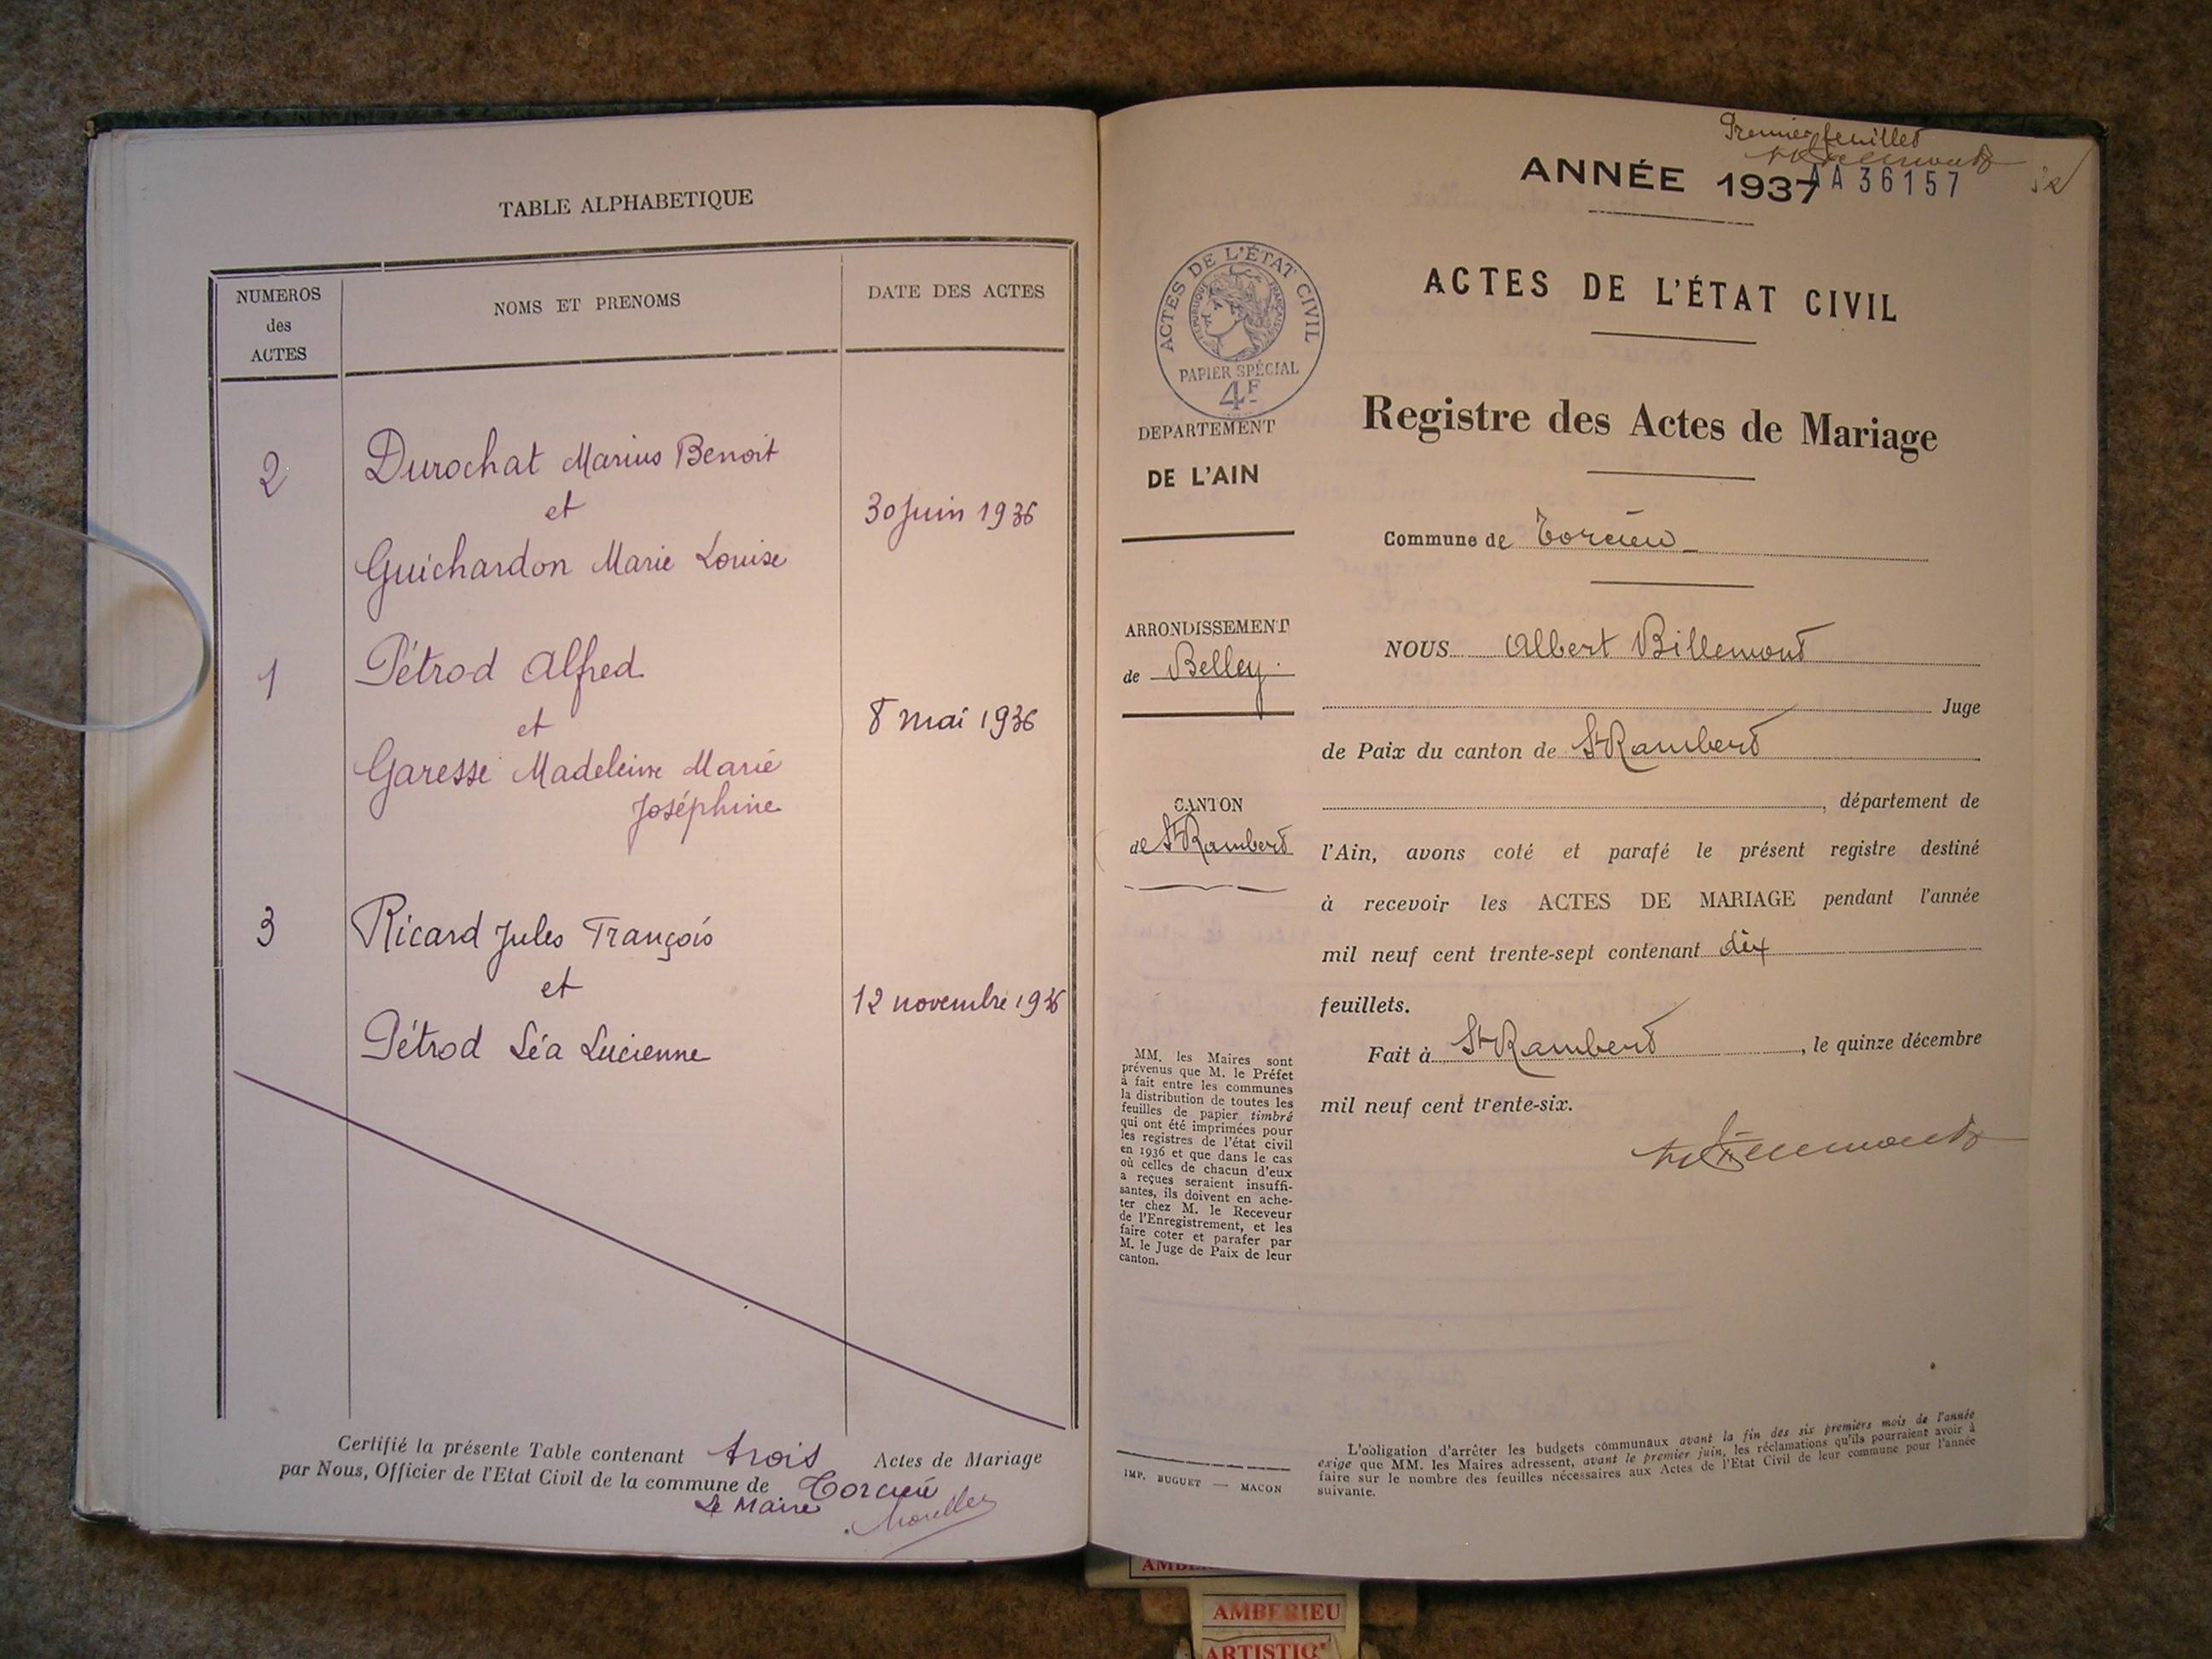 TABLE ALPHABETIQUE
NUMEROS
des
ACTES
NOMS ET PRENOMS
DATE DES ACTES
2
Durochat Marius Benoit
et
Guichardon Marie Louise
30 Juin 1936
1
Pétrod Alfred
et
Garesse Madeleine Marie
Joséphine
8 mai 1936
3
Ricard Jules François
et
Pétrod Léa Lucienne
12 novembre 1936
Certifié la présente Table contenant trois Actes de Mariage
par Nous, Officier de l'Etat Civil de la commune de Torcieu
Le Maire
Premier feuillet
ANNÉE 1937
AA 36157
ACTES DE L'ÉTAT CIVIL
RÉPUBLIQUE FRANÇAISE
PAPIER SPÉCIAL
4F
DEPARTEMENT
DE L'AIN
ARRONDISSEMENT
de Belley
CANTON
de St Rambert
MM. les Maires sont
prévenus que M. le Préfet
à fait entre les communes
la distribution de toutes les
feuilles de papier timbré
qui ont été imprimées pour
les registres de l'état civil
en 1936 et que dans le cas
où celles de chacun d'eux
a reçues seraient insuffi-
santes, ils doivent en ache-
ter chez M. le Receveur
de l'Enregistrement, et les
faire coter et parafer par
M. le Juge de Paix de leur
canton.
IMP. BUGUET — MACON
ACTES DE L'ÉTAT CIVIL
Registre des Actes de Mariage
Commune de Torcieu
NOUS Albert Billemont
Juge
de Paix du canton de St Rambert
, département de
l'Ain, avons coté et parafé le présent registre destiné
à recevoir les ACTES DE MARIAGE pendant l'année
mil neuf cent trente-sept contenant dix
feuillets.
Fait à St Rambert, le quinze décembre
mil neuf cent trente-six.
L'obligation d'arrêter les budgets communaux avant la fin des six premiers mois de l'année
exige que MM. les Maires adressent, avant le premier juin, les réclamations qu'ils pourraient avoir à
faire sur le nombre des feuilles nécessaires aux Actes de l'Etat Civil de leur commune pour l'année
suivante.
AMBERIEU
ARTISTIQ